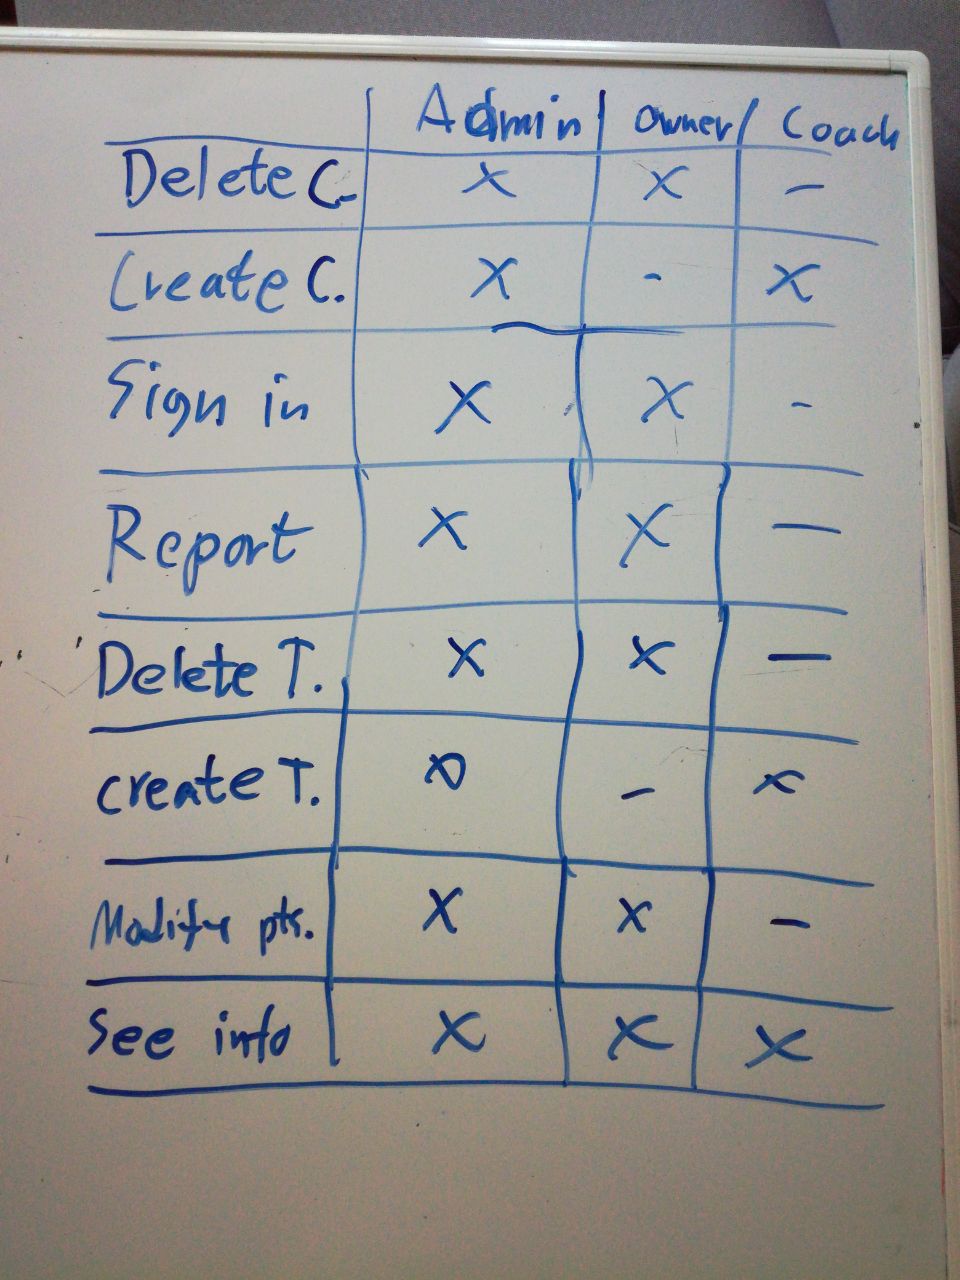 Admin Owner Coach
Delete C. X X -
Create C. X - X
Sign in X X -
Report X X -
Delete T. X X -
create T. X - X
Modify pts. X X -
See info X X X